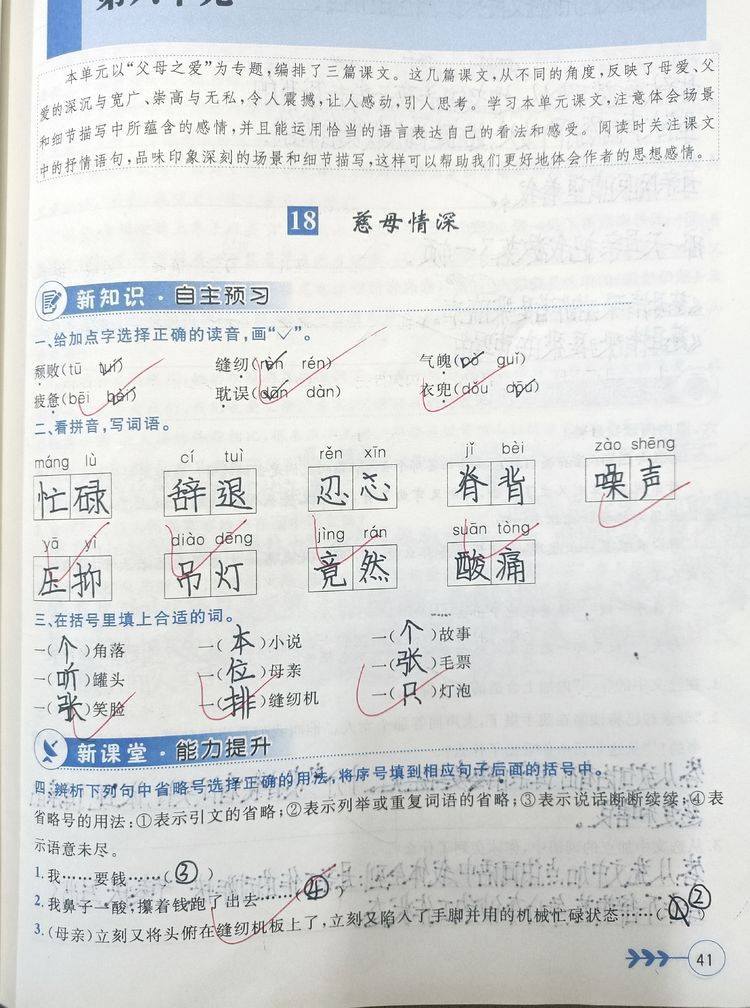 本单元以“父母之爱”为专题,编排了三篇课文。这几篇课文,从不同的角度,反映了母爱、父
爱的深沉与宽广、崇高与无私,令人震撼,让人感动,引人思考。学习本单元课文,注意体会场景
和细节描写中所蕴含的感情,并且能运用恰当的语言表达自己的看法和感受。阅读时关注课文
中的抒情语句,品味印象深刻的场景和细节描写,这样可以帮助我们更好地体会作者的思想感情。
18 慈母情深
新知识·自主预习
一、给加点字选择正确的读音,画“✓”。
颓败(tū tuí) 缝纫(rèn rén) 气魄(pò guǐ)
疲惫(bēi bèi) 耽误(dān dàn) 衣兜(dǒu dōu)
二、看拼音,写词语。
máng lù cí tuì rěn xīn jǐ bèi zào shēng
忙碌 辞退 忍心 脊背 噪声
yā yì diào dēng jìng rán suān tòng
压抑 吊灯 竟然 酸痛
三、在括号里填上合适的词。
一(个)角落 一(本)小说 一(个)故事
一(听)罐头 一(位)母亲 一(张)毛票
一(张)笑脸 一(排)缝纫机 一(只)灯泡
新课堂·能力提升
四、辨析下列句中省略号选择正确的用法,将序号填到相应句子后面的括号中。
省略号的用法:①表示引文的省略;②表示列举或重复词语的省略;③表示说话断断续续;④表
示语意未尽。
1.我……要钱……(③)
2.我鼻子一酸,攥着钱跑了出去……(④)
3.(母亲)立刻又将头俯在缝纫机板上了,立刻又陷入了手脚并用的机械忙碌状态……( )②
41